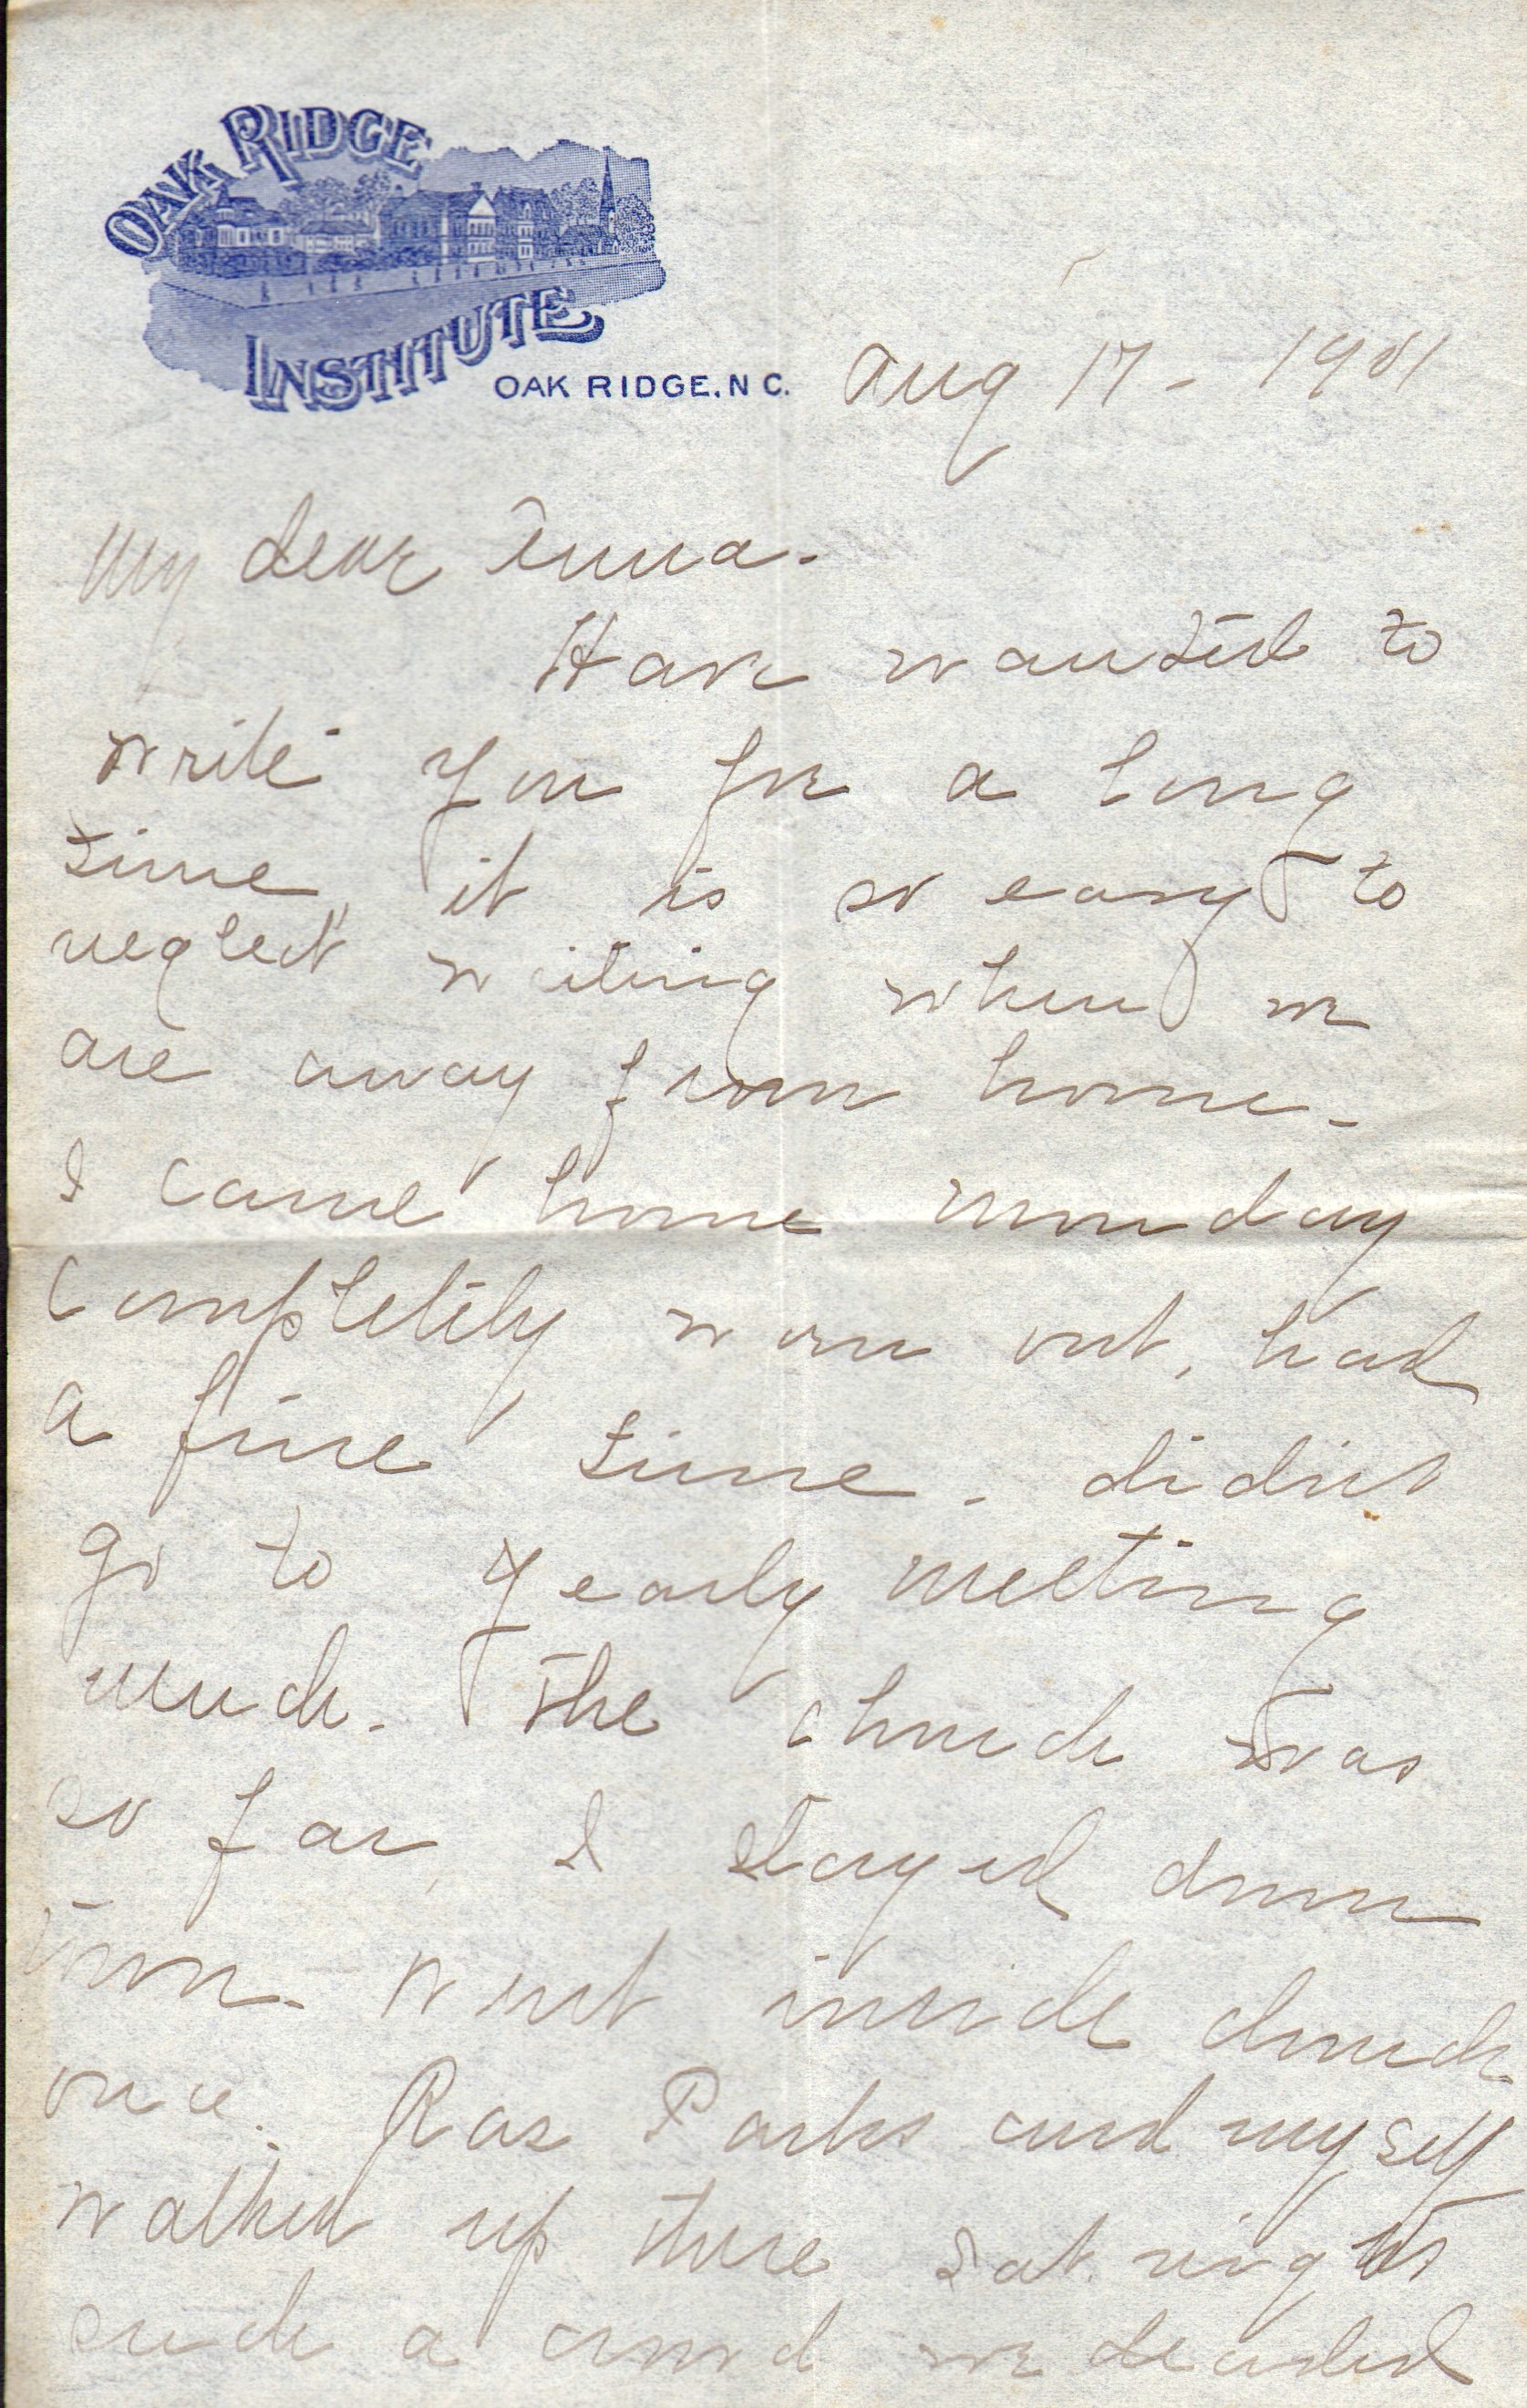 OAK RIDGE
INSTITUTE
OAK RIDGE, N C.
Aug 17 - 1901
My dear Anna -
Have wanted to
write you for a long
time, it is so easy to
neglect writing when we
are away from home -
I came home monday
completely worn out, had
a fine time - didnt
go to Yearly meeting
much - The church was
so far, I stayed down
town - went inside church
once. Ras Parks and myself
walked up there Sat. night
such a crowd we decided